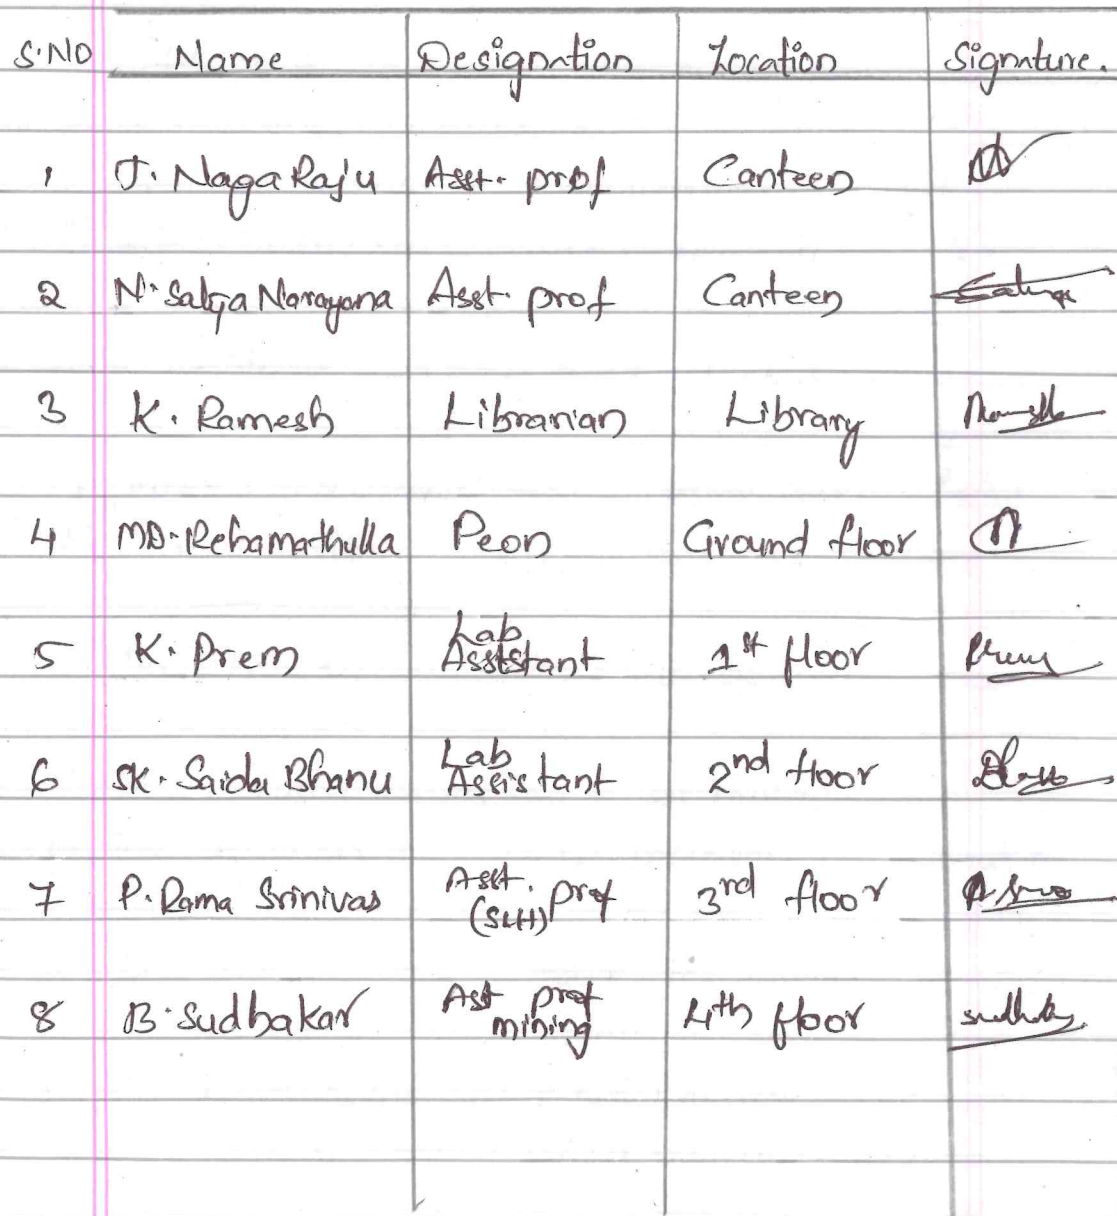 S.NO Name Designation Location Signature.
1 J. Naga Raju Asst. prof Canteen
2 N. Satya Narayana Asst. prof Canteen
3 K. Ramesh Librarian Library
4 MD. Rehamathulla Peon Ground floor
5 K. Prem Lab Assistant 1st floor Prem
6 SK. Saida Bhanu Lab Assistant 2nd floor
7 P. Rama Srinivas Asst. prof (S&H) 3rd floor
8 B. Sudhakar Ast prof mining 4th floor